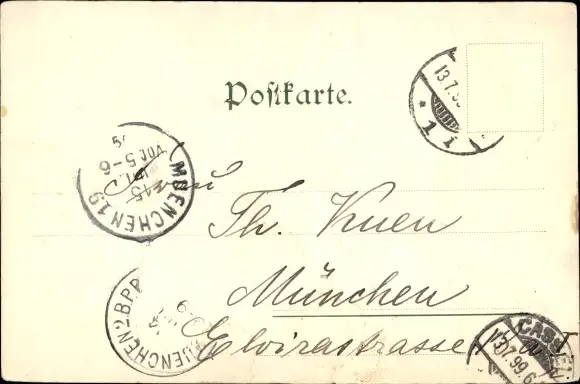 Postkarte.
13.7.99
* 1 i
MUENCHEN 19
15
VOR. 5-6
Frau
Th. Kuen
München
Elvirastrasse
MUENCHEN 2 B.P.P.
CASSEL
13.7.99 6